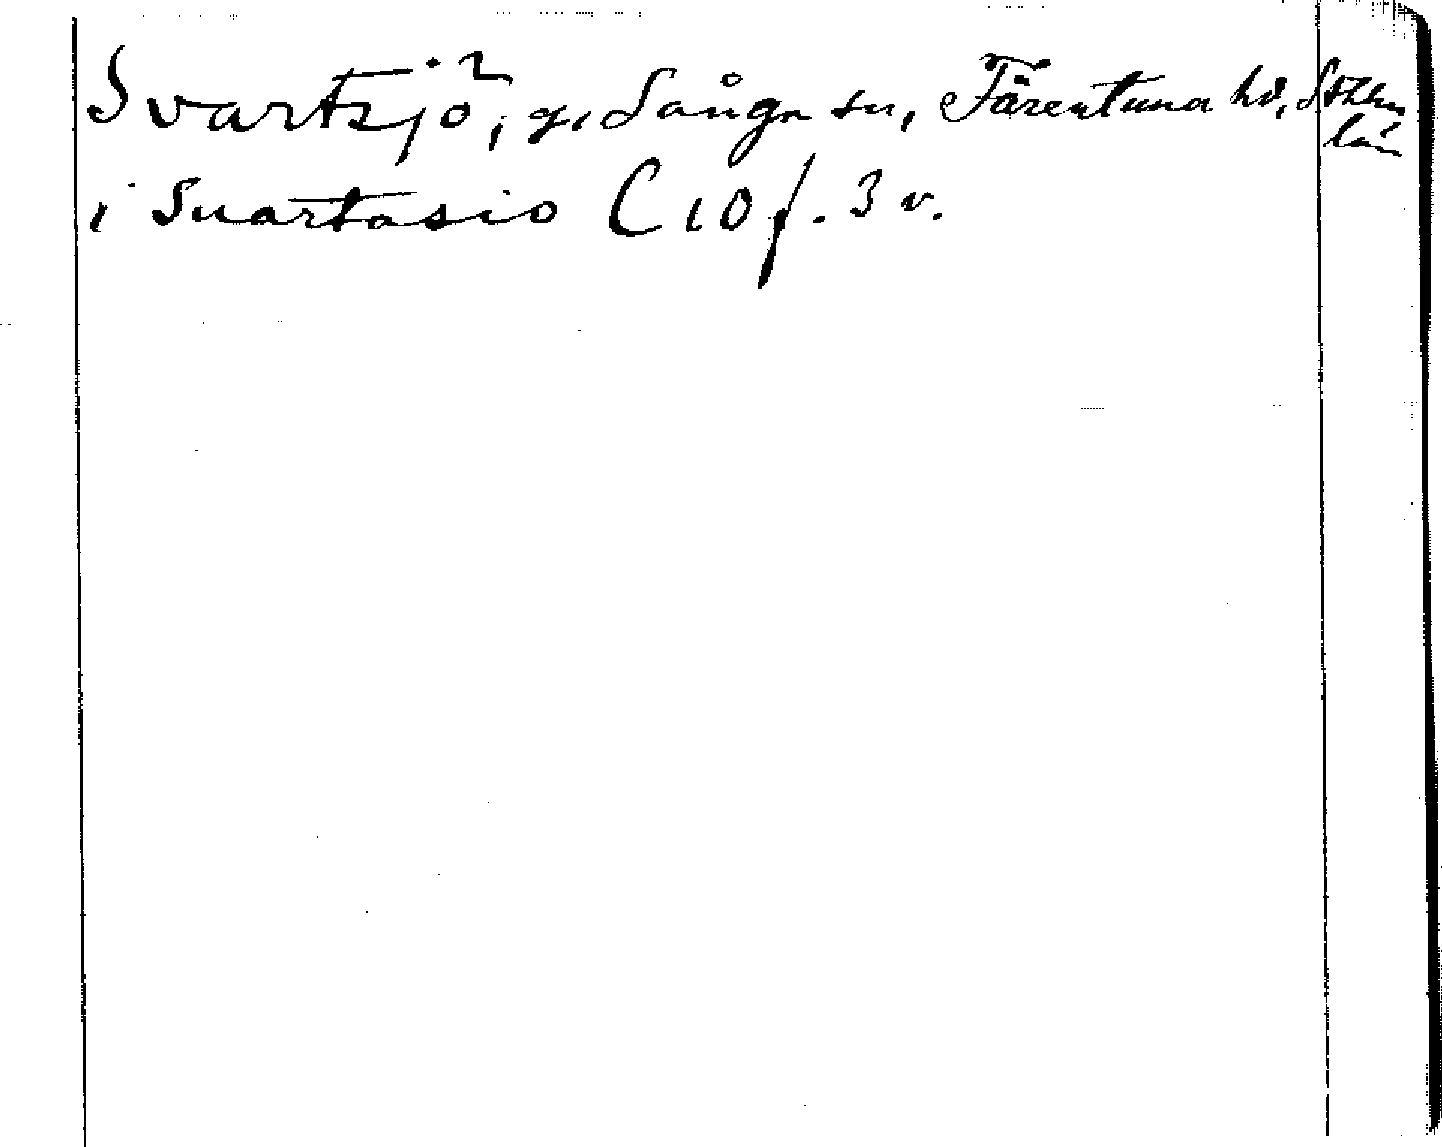 Svartsjö, g, Sånga sn, Färentuna hd, Sthlms
län
i Suartasio C 10 f. 3 v.